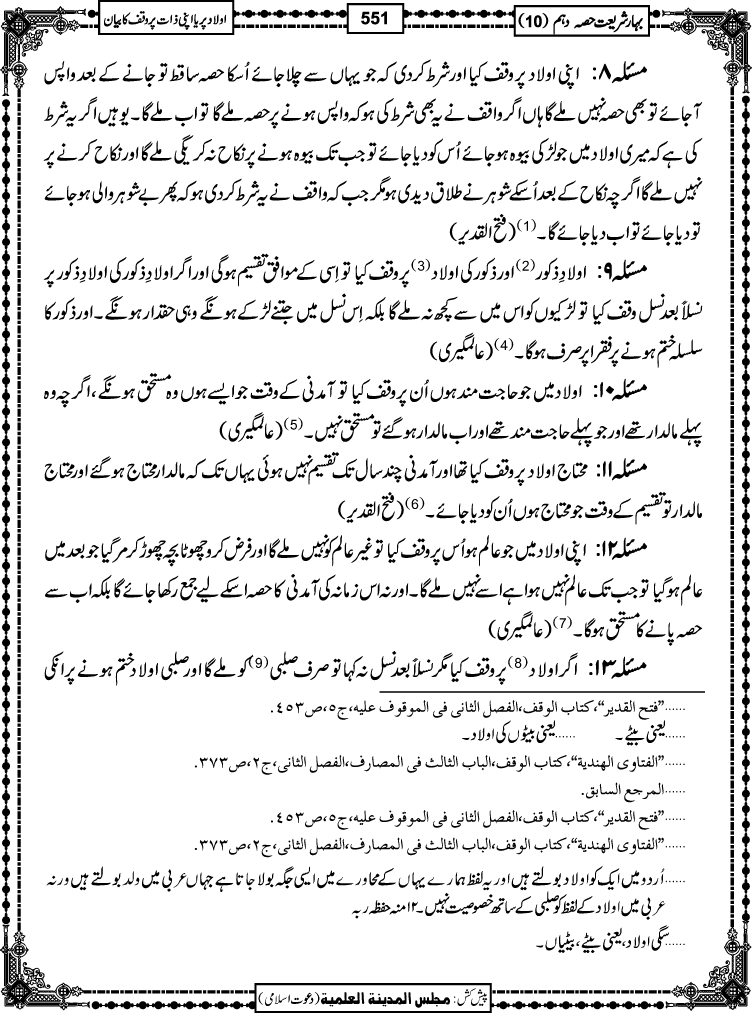 بہارِ شریعت حصہ دہم (10)
551
اولاد پر یا اپنی ذات پر وقف کا بیان
مسئلہ ۸: اپنی اولاد پر وقف کیا اور شرط کردی کہ جو یہاں سے چلا جائے اُسکا حصہ ساقط تو جانے کے بعد واپس
آجائے تو بھی حصہ نہیں ملے گا ہاں اگر واقف نے یہ بھی شرط کی ہو کہ واپس ہونے پر حصہ ملے گا تو اب ملے گا۔ یوہیں اگر یہ شرط
کی ہے کہ میری اولاد میں جو لڑکی بیوہ ہوجائے اُس کو دیا جائے تو جب تک بیوہ ہونے پر نکاح نہ کریگی ملے گا اور نکاح کرنے پر
نہیں ملے گا اگرچہ نکاح کے بعد اُسکے شوہر نے طلاق دیدی ہو مگر جب کہ واقف نے یہ شرط کردی ہو کہ پھر بے شوہر والی ہوجائے
تو دیا جائے تو اب دیا جائے گا۔(1) (فتح القدیر)
مسئلہ ۹: اولادِ ذکور(2) اور ذکور کی اولاد(3) پر وقف کیا تو اِسی کے موافق تقسیم ہوگی اور اگر اولادِ ذکور کی اولادِ ذکور پر
نسلاً بعد نسل وقف کیا تو لڑکیوں کو اس میں سے کچھ نہ ملے گا بلکہ اِس نسل میں جتنے لڑکے ہونگے وہی حقدار ہونگے۔ اور ذکور کا
سلسلہ ختم ہونے پر فقرا پر صرف ہوگا۔(4) (عالمگیری)
مسئلہ ۱۰: اولاد میں جو حاجت مند ہوں اُن پر وقف کیا تو آمدنی کے وقت جو ایسے ہوں وہ مستحق ہونگے، اگرچہ وہ
پہلے مالدار تھے اور جو پہلے حاجت مند تھے اور اب مالدار ہوگئے تو مستحق نہیں۔(5) (عالمگیری)
مسئلہ ۱۱: محتاج اولاد پر وقف کیا تھا اور آمدنی چند سال تک تقسیم نہیں ہوئی یہاں تک کہ مالدار محتاج ہوگئے اور محتاج
مالدار تو تقسیم کے وقت جو محتاج ہوں اُن کو دیا جائے۔(6) (فتح القدیر)
مسئلہ ۱۲: اپنی اولاد میں جو عالم ہو اُس پر وقف کیا تو غیر عالم کو نہیں ملے گا اور فرض کرو چھوٹا بچہ چھوڑ کر مر گیا جو بعد میں
عالم ہوگیا تو جب تک عالم نہیں ہوا ہے اسے نہیں ملے گا۔ اور نہ اس زمانہ کی آمدنی کا حصہ اسکے لیے جمع رکھا جائے گا بلکہ اب سے
حصہ پانے کا مستحق ہوگا۔(7) (عالمگیری)
مسئلہ ۱۳: اگر اولاد(8) پر وقف کیا مگر نسلاً بعد نسل نہ کہا تو صرف صلبی(9) کو ملے گا اور صلبی اولاد ختم ہونے پر انکی
......”فتح القدير“، كتاب الوقف، الفصل الثانى فى الموقوف عليه، ج٥، ص٤٥٣.
......یعنی بیٹے۔ ......یعنی بیٹوں کی اولاد۔
......”الفتاوى الهندية“، كتاب الوقف، الباب الثالث فى المصارف، الفصل الثانى، ج٢، ص٣٧٣.
......المرجع السابق.
......”فتح القدير“، كتاب الوقف، الفصل الثانى فى الموقوف عليه، ج٥، ص٤٥٣.
......”الفتاوى الهندية“، كتاب الوقف، الباب الثالث فى المصارف، الفصل الثانى، ج٢، ص٣٧٣.
......اُردو میں ایک کو اولاد بولتے ہیں اور یہ لفظ ہمارے یہاں کے محاورے میں ایسی جگہ بولا جاتا ہے جہاں عربی میں ولد بولتے ہیں ورنہ
عربی میں اولاد کے لفظ کو صلبی کے ساتھ خصوصیت نہیں۔ ۱۲ منہ حفظہ ربہ
......سگی اولاد، یعنی بیٹے، بیٹیاں۔
پیش کش: مجلس المدينة العلمية (دعوتِ اسلامی)